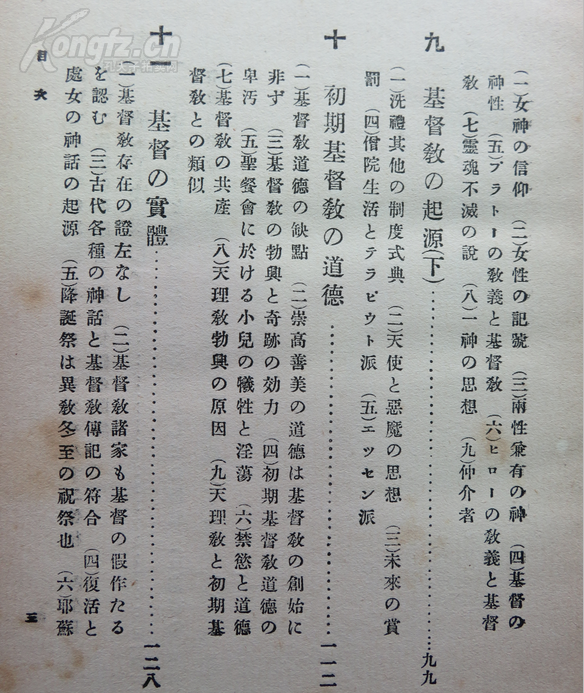 (一)女神の信仰 (二)女性の記號 (三)兩性兼有の神 (四)基督の
神性 (五)プラトーの敎義と基督敎 (六)ヒローの敎義と基督
敎 (七)靈魂不滅の說 (八)一神の思想 (九)仲介者
九 基督敎の起源(下)……九九
(一)洗禮其他の制度式典 (二)天使と惡魔の思想 (三)未來の賞
罰 (四)僧院生活とテラピウト派 (五)エッセン派
十 初期基督敎の道德……一一二
(一)基督敎道德の缺點 (二)崇高善美の道德は基督敎の創始に
非ず (三)基督敎の勃興と奇跡の効力 (四)初期基督敎道德の
卑汚 (五)聖餐會に於ける小兒の犧牲と淫蕩 (六)禁慾と道德
(七)基督敎の共產 (八)天理敎勃興の原因 (九)天理敎と初期基
督敎との類似
十一 基督の實體……一二八
(一)基督敎存在の證左なし (二)基督敎諸家も基督の假作たる
を認む (三)古代各種の神話と基督敎傳記の符合 (四)復活と
處女の神話の起源 (五)降誕祭は異敎冬至の祝祭也 (六)耶蘇
目次
三
Kongfz.com